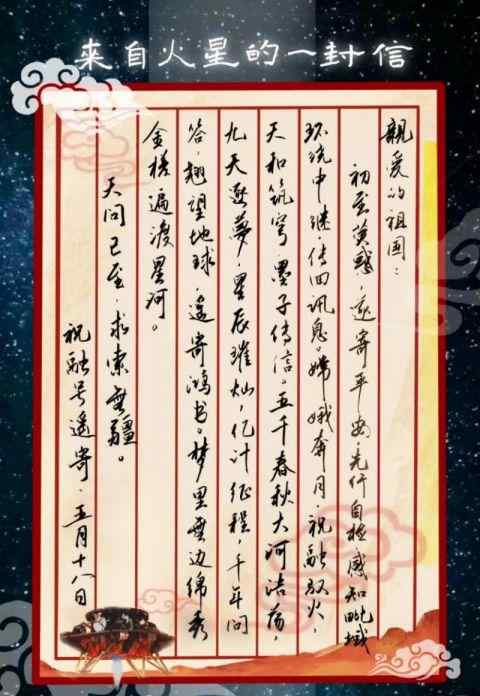 来自火星的一封信
親爱的祖国：
初至荧惑，遥寄平安，自感知域
环绕中继，传回讯息。嫦娥奔月，祝融驭火，
天和筑穹，墨子传信。五千春秋大河浩荡，
九天逐夢，星辰璀灿，亿计征程，千年问
答，翘望地球，遥寄鸿书。梦里無边绵秀
金槎遍渡星河。
天问已至，求索無疆。
祝融号遥寄·五月十八日